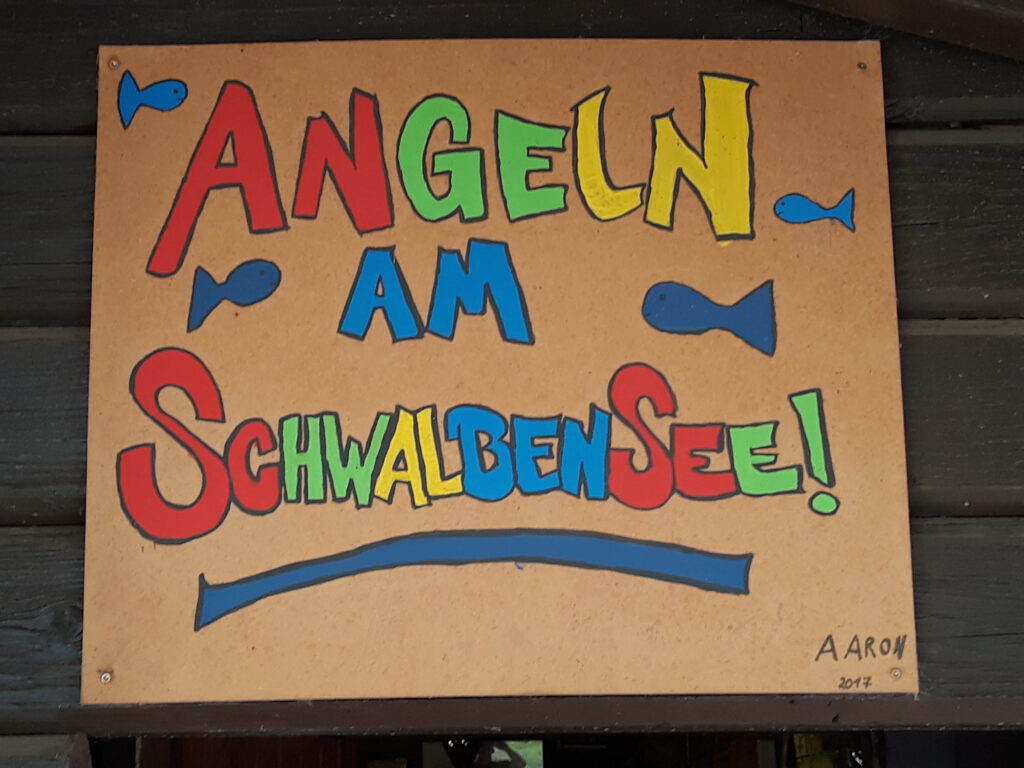 ANGELN
AM
SCHWALBENSEE!
AARON
2017